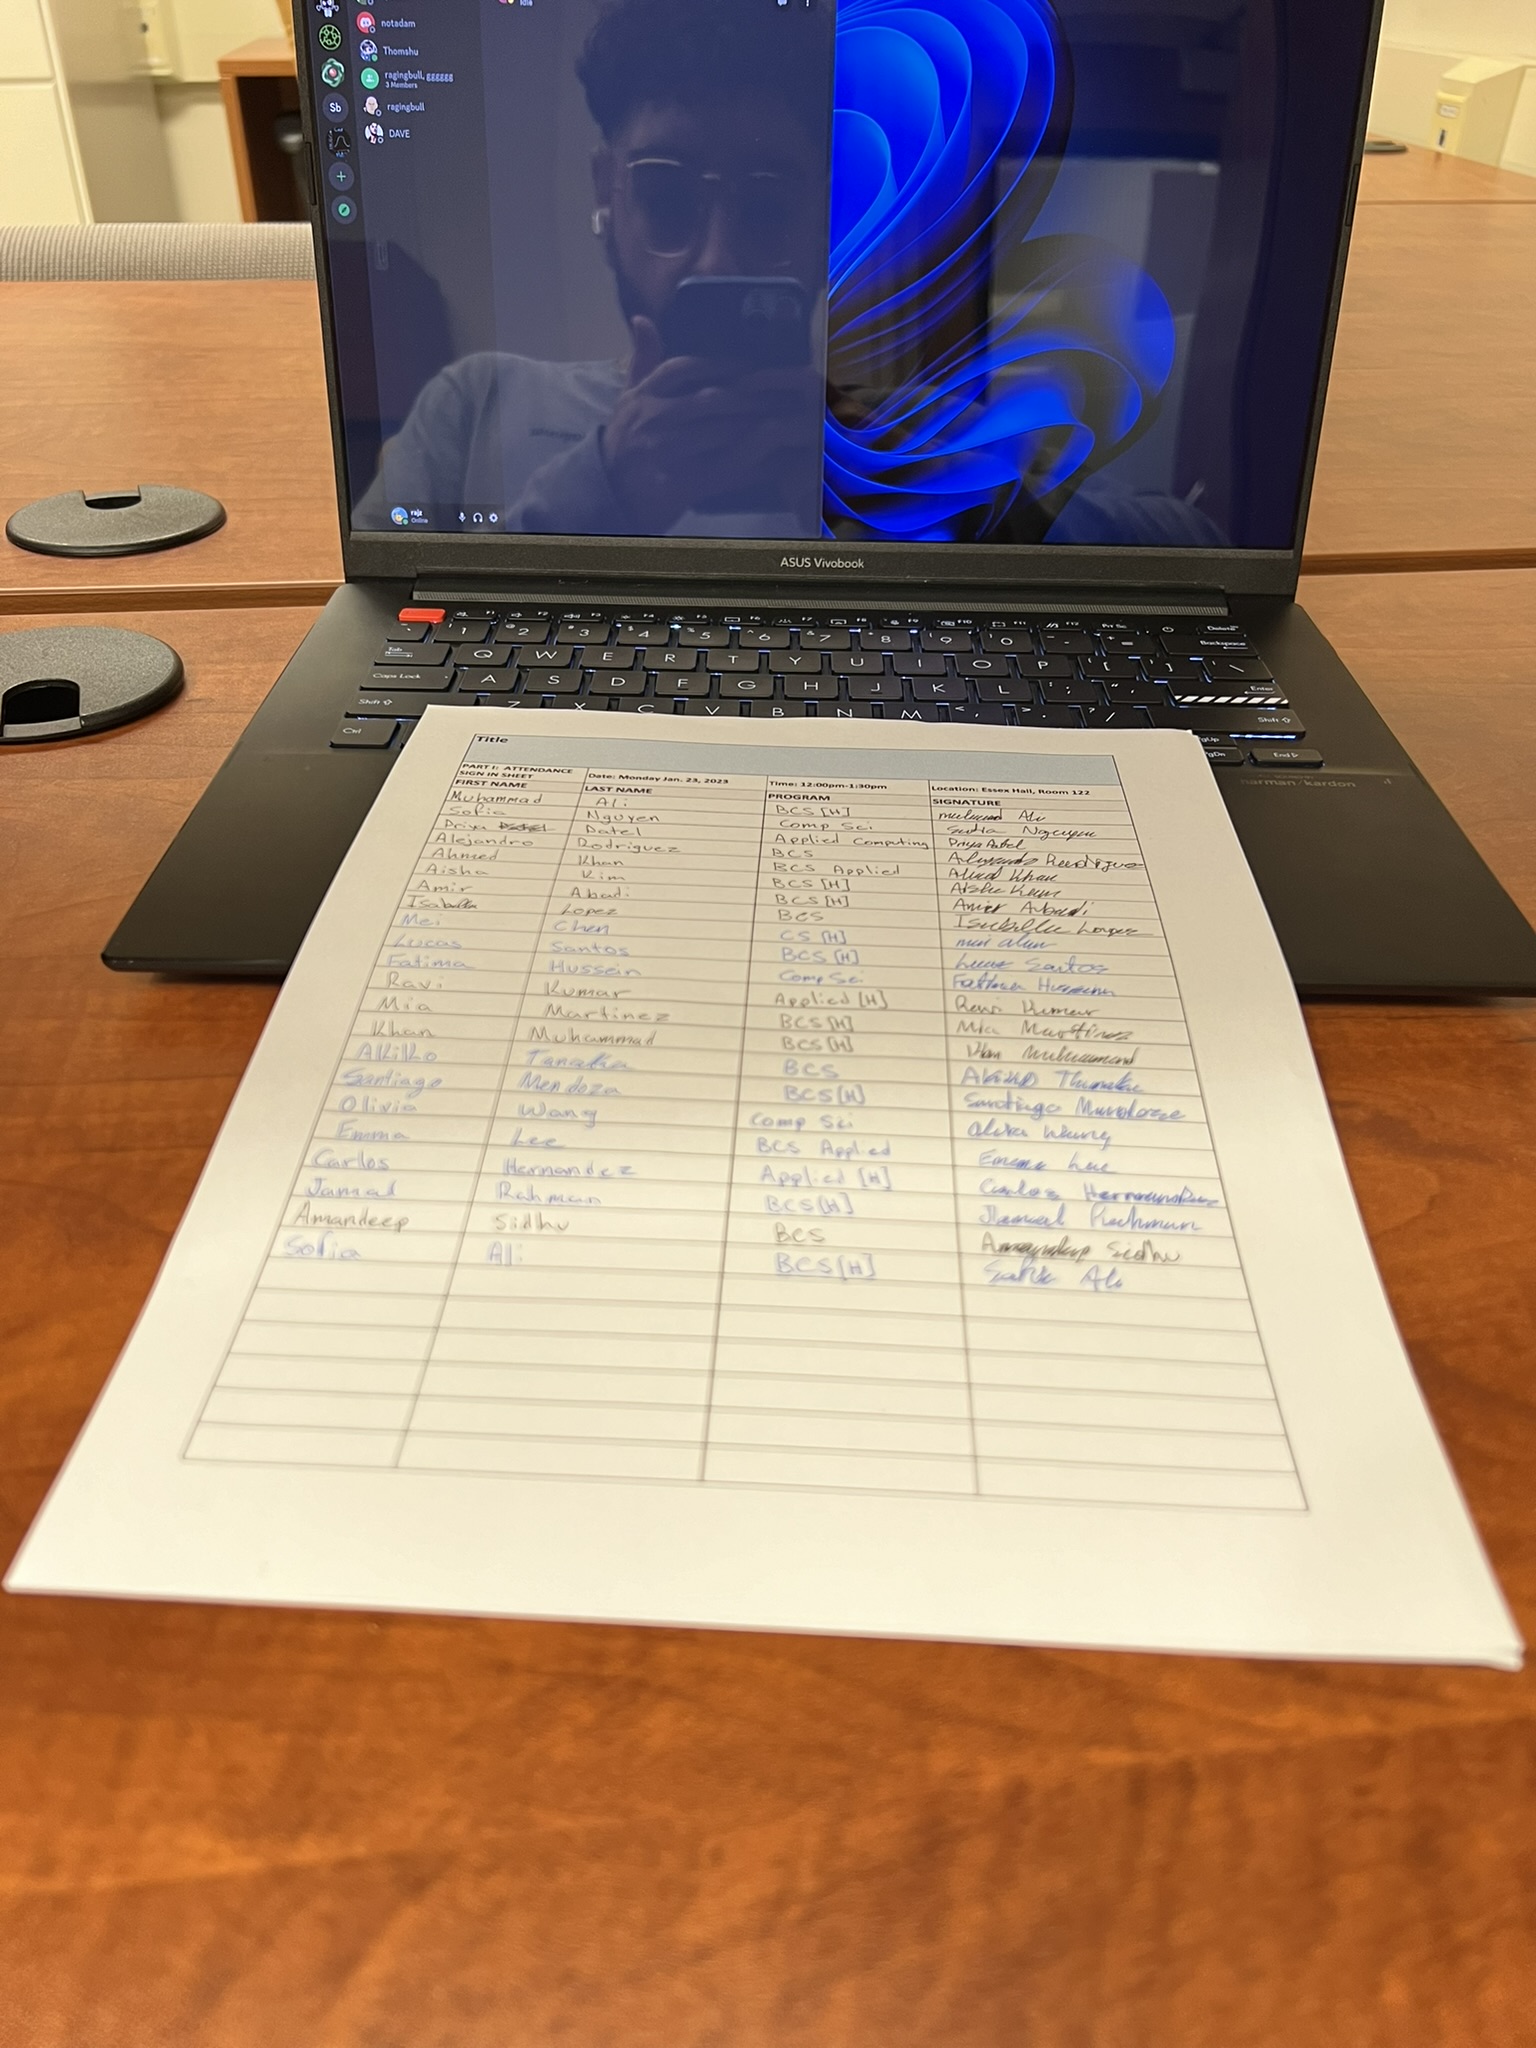 Idle
notadam
Thomshu
ragingbull, gggggg
3 Members
Sb
ragingbull
DAVE
rajz
Online
ASUS Vivobook
F1 F2 F3 F4 F5 F6 F7 F8 F9 F10 F11 F12 Prt Sc Delete
1 2 3 4 5 6 7 8 9 0 - = Backspace
Tab Q W E R T Y U I O P [ ] \
Caps Lock A S D F G H J K L ; ' Enter
Shift Z X C V B N M < > / Shift
Ctrl PgUp
PgDn End
harman/kardon
Title
PART I: ATTENDANCE SIGN IN SHEET Date: Monday Jan. 23, 2023 Time: 12:00pm-1:30pm Location: Essex Hall, Room 122
FIRST NAME LAST NAME PROGRAM SIGNATURE
Muhammad Ali BCS [H] Ali
Sofia Nguyen Comp Sci Sofia Nguyen
Priya Patel Applied Computing Priya Patel
Alejandro Rodriguez BCS Alejandro Rodriguez
Ahmed Khan BCS Applied Ahmed Khan
Aisha Kim BCS [H] Aisha Kim
Amir Abadi BCS [H] Amir Abadi
Isabella Lopez BCS Isabella Lopez
Mei Chen CS [H] Mei Chen
Lucas Santos BCS [H] Lucas Santos
Fatima Hussein Comp Sci Fatima Hussein
Ravi Kumar Applied [H] Ravi Kumar
Mia Martinez BCS [H] Mia Martinez
Khan Muhammad BCS [H] Khan Muhammad
Akiko Tanaka BCS Akiko Tanaka
Santiago Mendoza BCS [H] Santiago Mendoza
Olivia Wang Comp Sci Olivia Wang
Emma Lee BCS Applied Emma Lee
Carlos Hernandez Applied [H] Carlos Hernandez
Jamal Rahman BCS [H] Jamal Rahman
Amandeep Sidhu BCS Amandeep Sidhu
Sofia Ali BCS [H] Sofia Ali